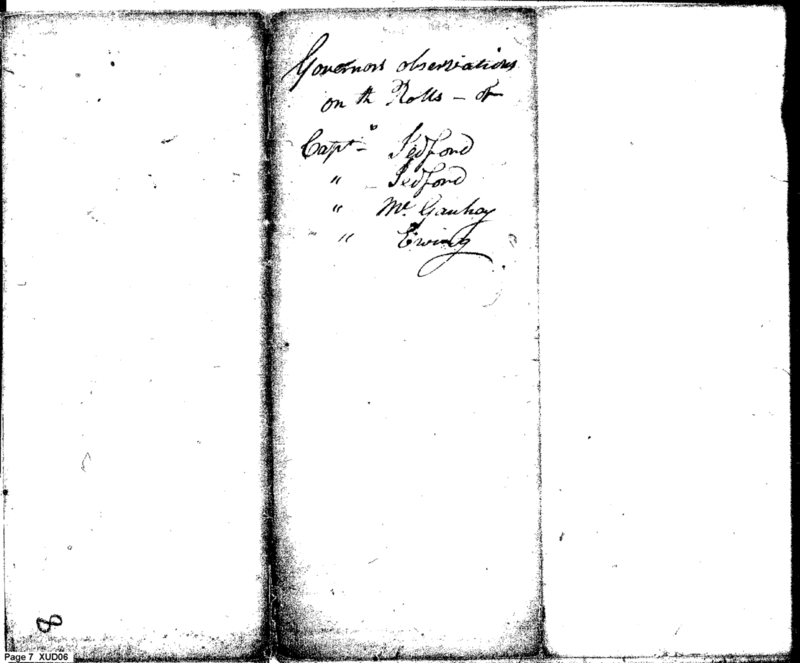 Governors observations
on th Rolls – of
Capt – Tedford
" – Tedford
" Mc Gauhey
" Ewing
8
Page 7 XUD06